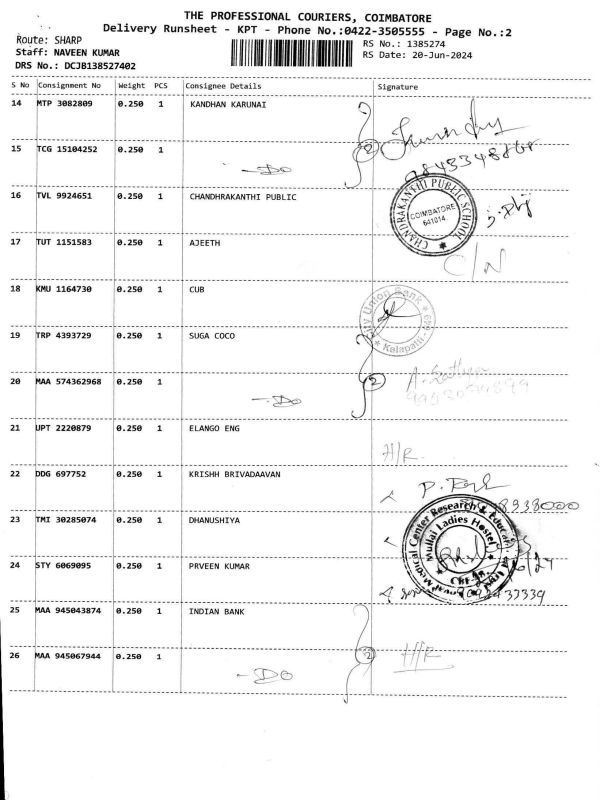 THE PROFESSIONAL COURIERS, COIMBATORE
Delivery Runsheet - KPT - Phone No.:0422-3505555 - Page No.:2
Route: SHARP
RS No.: 1385274
Staff: NAVEEN KUMAR
RS Date: 20-Jun-2024
DRS No.: DCJB138527402
S No Consignment No Weight PCS Consignee Details Signature
14 MTP 3082809 0.250 1 KANDHAN KARUNAI
15 TCG 15104252 0.250 1
2
-Do
16 TVL 9924651 0.250 1 CHANDHRAKANTHI PUBLIC
CHANDRAKANTHI PUBLIC SCHOOL
COIMBATORE
641014
17 TUT 1151583 0.250 1 AJEETH
C/N
18 KMU 1164730 0.250 1 CUB
City Union Bank
Kalapatti - 649
19 TRP 4393729 0.250 1 SUGA COCO
20 MAA 574362968 0.250 1
2
-Do
21 UPT 2220879 0.250 1 ELANGO ENG
H/R
22 DDG 697752 0.250 1 KRISHH BRIVADAAVAN
8938000
23 TMI 30285074 0.250 1 DHANUSHIYA
Medical Center Research &
Mullai Ladies Hostel
24 STY 6069095 0.250 1 PRVEEN KUMAR
25 MAA 945043874 0.250 1 INDIAN BANK
26 MAA 945067944 0.250 1
2
H/R
-Do